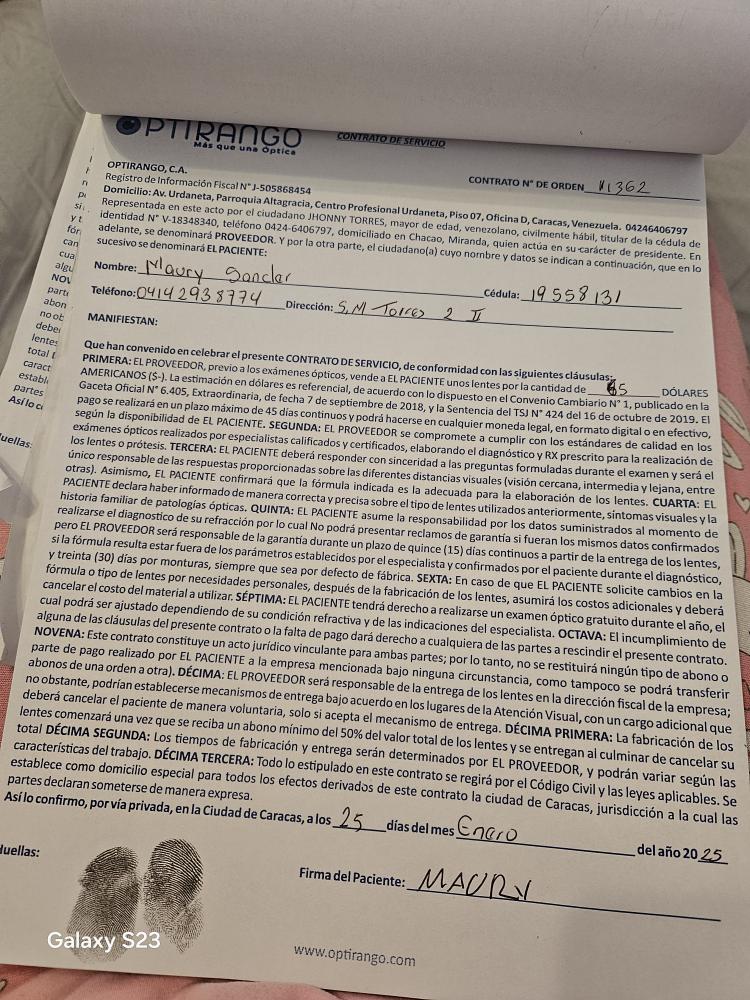 OPTIRANGO
Más que una Óptica
CONTRATO DE SERVICIO
OPTIRANGO, C.A.
CONTRATO N° DE ORDEN 11362
Registro de Información Fiscal N° J-505868454
Domicilio: Av. Urdaneta, Parroquia Altagracia, Centro Profesional Urdaneta, Piso 07, Oficina D, Caracas, Venezuela. 04246406797
Representada en este acto por el ciudadano JHONNY TORRES, mayor de edad, venezolano, civilmente hábil, titular de la cédula de
identidad N° V-18348340, teléfono 0424-6406797, domiciliado en Chacao, Miranda, quien actúa en su carácter de presidente. En
adelante, se denominará PROVEEDOR. Y por la otra parte, el ciudadano(a) cuyo nombre y datos se indican a continuación, que en lo
sucesivo se denominará EL PACIENTE:
Nombre: Maury Sanclar
Cédula: 19558131
Teléfono: 04142938774 Dirección: S.M Torres 2 II
MANIFIESTAN:
Que han convenido en celebrar el presente CONTRATO DE SERVICIO, de conformidad con las siguientes cláusulas:
PRIMERA: EL PROVEEDOR, previo a los exámenes ópticos, vende a EL PACIENTE unos lentes por la cantidad de 65 DÓLARES
AMERICANOS ($-). La estimación en dólares es referencial, de acuerdo con lo dispuesto en el Convenio Cambiario N° 1, publicado en la
Gaceta Oficial N° 6.405, Extraordinaria, de fecha 7 de septiembre de 2018, y la Sentencia del TSJ N° 424 del 16 de octubre de 2019. El
pago se realizará en un plazo máximo de 45 días continuos y podrá hacerse en cualquier moneda legal, en formato digital o en efectivo,
según la disponibilidad de EL PACIENTE. SEGUNDA: EL PROVEEDOR se compromete a cumplir con los estándares de calidad en los
exámenes ópticos realizados por especialistas calificados y certificados, elaborando el diagnóstico y RX prescrito para la realización de
los lentes o prótesis. TERCERA: EL PACIENTE deberá responder con sinceridad a las preguntas formuladas durante el examen y será el
único responsable de las respuestas proporcionadas sobre las diferentes distancias visuales (visión cercana, intermedia y lejana, entre
otras). Asimismo, EL PACIENTE confirmará que la fórmula indicada es la adecuada para la elaboración de los lentes. CUARTA: EL
PACIENTE declara haber informado de manera correcta y precisa sobre el tipo de lentes utilizados anteriormente, síntomas visuales y la
historia familiar de patologías ópticas. QUINTA: EL PACIENTE asume la responsabilidad por los datos suministrados al momento de
realizarse el diagnostico de su refracción por lo cual No podrá presentar reclamos de garantía si fueran los mismos datos confirmados
pero EL PROVEEDOR será responsable de la garantía durante un plazo de quince (15) días continuos a partir de la entrega de los lentes,
si la fórmula resulta estar fuera de los parámetros establecidos por el especialista y confirmados por el paciente durante el diagnóstico,
y treinta (30) días por monturas, siempre que sea por defecto de fábrica. SEXTA: En caso de que EL PACIENTE solicite cambios en la
fórmula o tipo de lentes por necesidades personales, después de la fabricación de los lentes, asumirá los costos adicionales y deberá
cancelar el costo del material a utilizar. SÉPTIMA: EL PACIENTE tendrá derecho a realizarse un examen óptico gratuito durante el año, el
cual podrá ser ajustado dependiendo de su condición refractiva y de las indicaciones del especialista. OCTAVA: El incumplimiento de
alguna de las cláusulas del presente contrato o la falta de pago dará derecho a cualquiera de las partes a rescindir el presente contrato.
NOVENA: Este contrato constituye un acto jurídico vinculante para ambas partes; por lo tanto, no se restituirá ningún tipo de abono o
parte de pago realizado por EL PACIENTE a la empresa mencionada bajo ninguna circunstancia, como tampoco se podrá transferir
abonos de una orden a otra). DÉCIMA: EL PROVEEDOR será responsable de la entrega de los lentes en la dirección fiscal de la empresa;
no obstante, podrían establecerse mecanismos de entrega bajo acuerdo en los lugares de la Atención Visual, con un cargo adicional que
deberá cancelar el paciente de manera voluntaria, solo si acepta el mecanismo de entrega. DÉCIMA PRIMERA: La fabricación de los
lentes comenzará una vez que se reciba un abono mínimo del 50% del valor total de los lentes y se entregan al culminar de cancelar su
total DÉCIMA SEGUNDA: Los tiempos de fabricación y entrega serán determinados por EL PROVEEDOR, y podrán variar según las
características del trabajo. DÉCIMA TERCERA: Todo lo estipulado en este contrato se regirá por el Código Civil y las leyes aplicables. Se
establece como domicilio especial para todos los efectos derivados de este contrato la ciudad de Caracas, jurisdicción a la cual las
partes declaran someterse de manera expresa.
Así lo confirmo, por vía privada, en la Ciudad de Caracas, a los 25 días del mes Enero del año 2025
Huellas:
Firma del Paciente: MAURY
www.optirango.com
Galaxy S23